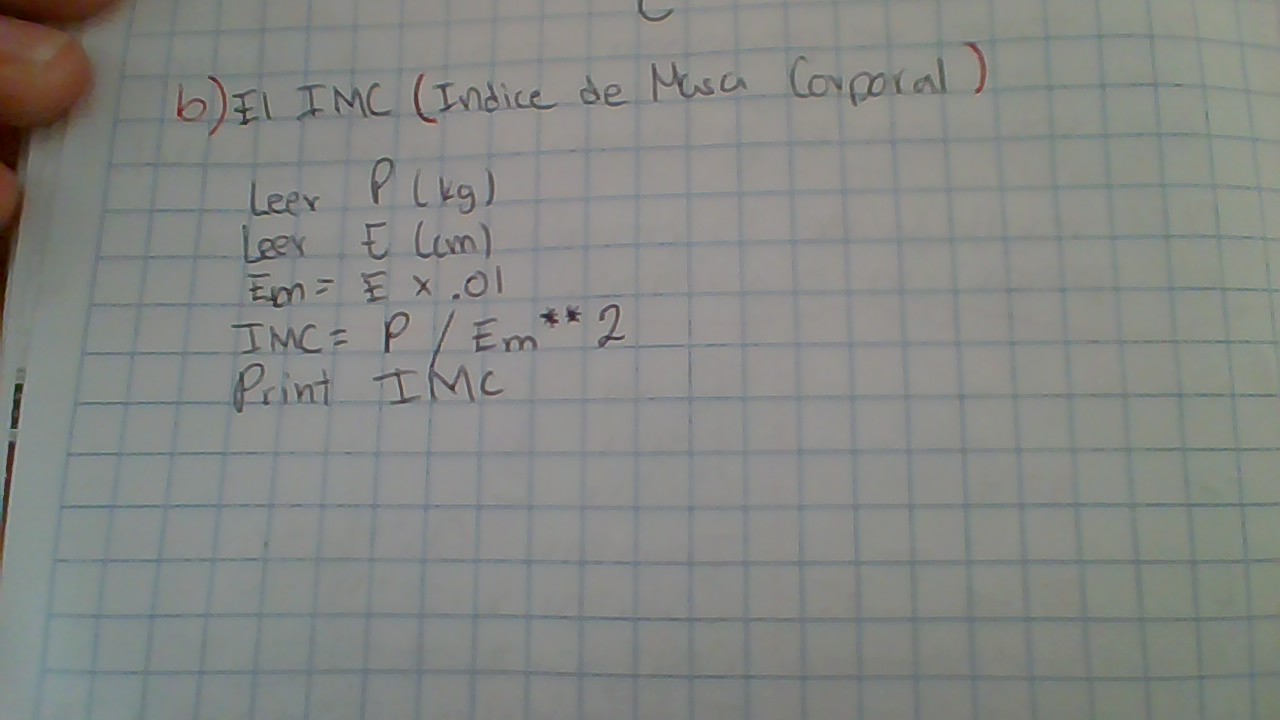 b) El IMC (Indice de Masa Corporal)
Leer P (kg)
Leer E (cm)
Em = E x .01
IMC = P / Em ** 2
Print IMC